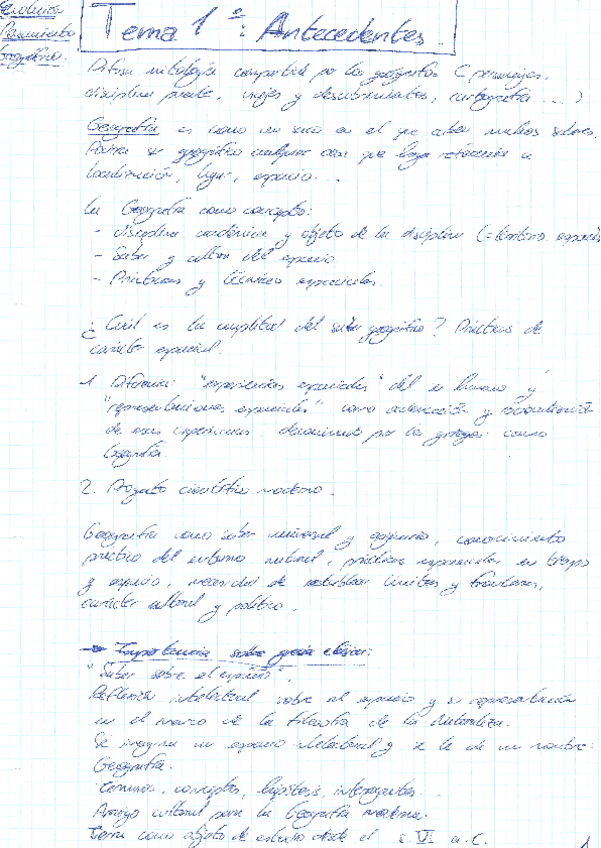 Evolución
Pensamiento
Geográfico.
Tema 1º: Antecedentes.
Difusa mitología compartida por los geógrafos (personajes,
disciplina puente, viajes y descubrimientos, cartografía ...)
Geografía es como un saco en el que caben muchos saberes.
Podría ser geográfico cualquier cosa que haga referencia a
localización, lugar, espacio...
La Geografía como concepto:
- disciplina académica y objeto de la disciplina (= territorio, espacio
- Saber y cultura del espacio.
- Prácticas y técnicas espaciales.
¿Cuál es la amplitud del saber geográfico? Prácticas de
carácter espacial.
1. Diferencia: "experiencias espaciales" del ser humano y
"representaciones espaciales" como ordenación y racionalización
de esas experiencias denominado por los griegos como
Geografía.
2. Proyecto científico moderno.
Geografía como saber universal y espacio, conocimiento
práctico del entorno natural, prácticas espaciales en tiempo
y espacio, necesidad de establecer límites y fronteras,
carácter cultural y político.
→ Importancia sobre grecia clásica:
"Saber sobre el espacio".
Reflexión intelectual sobre el espacio y su representación
en el marco de la Filosofía de la Naturaleza.
Se imagina un espacio intelectual y se le da un nombre:
Geografía.
Términos, conceptos, hipótesis, interrogantes...
Arraigo cultural para la Geografía moderna.
Tierra como objeto de estudio desde el s. VI a.C.
1